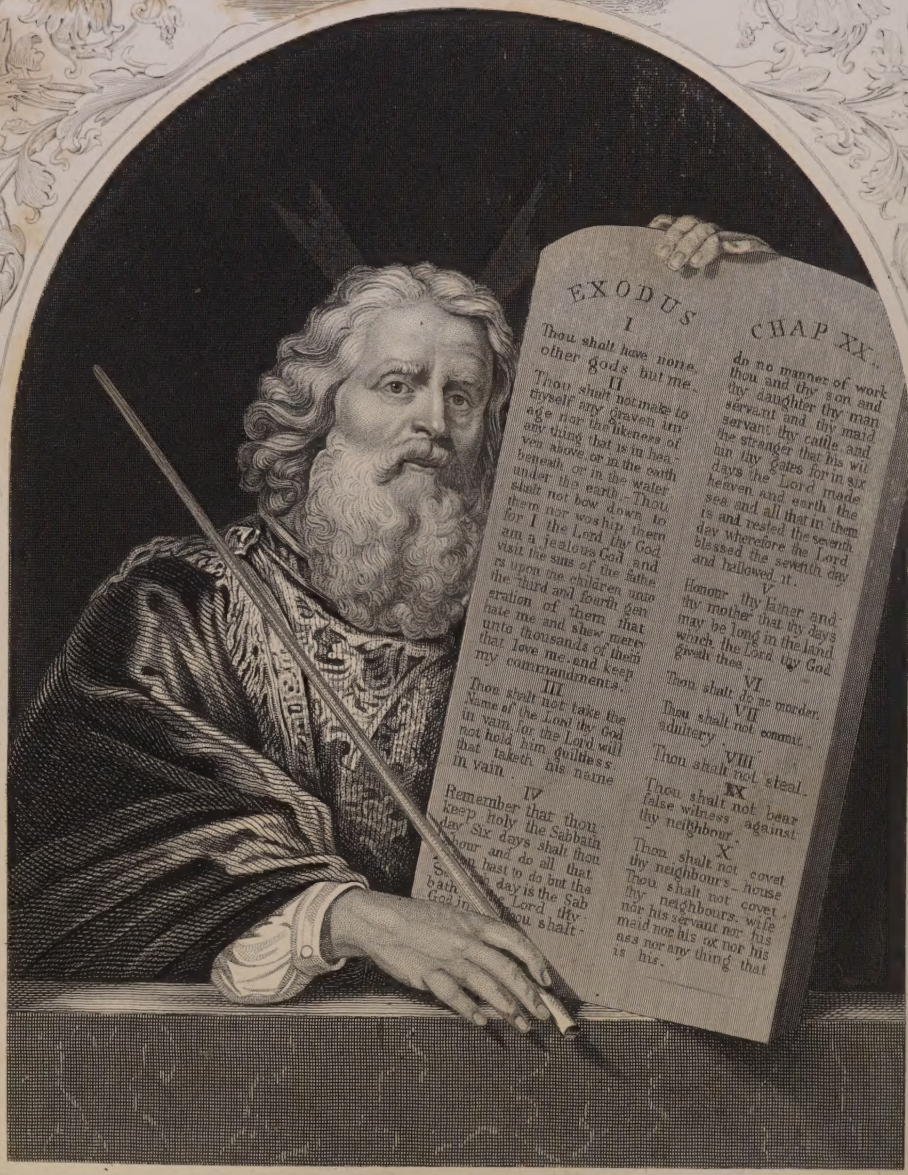 EXODUS
I
Thou shalt have none
other gods but me
II
Thou shalt not make to
thyself any graven im
age nor the likeness of
any thing that is in hea
ven above or in the earth
beneath, or in the water
under the earth Thou
shalt not bow down to
them nor woship them
for I the Lord thy God
am a jealous God and
visit the sins of the fathe
rs upon the children unto
the third and fourth gen
eration of them that
hate me and shew mercy
unto thousands of them
that love me and keep
my commandments.
III
Thou shalt not take the
Name of the Lord thy God
in vain for the Lord will
not hold him guiltless
that taketh his name
in vain
IV
Remember that thou
keep holy the Sabbath
day Six days shalt thou
bour and do all that
hast to do but the
day is the Sab
bath Lord thy
God in thou shalt
CHAP XX.
do no manner of work
thou and thy son and
thy daughter thy man
servant and thy maid
servant thy cattle and
the stranger that is wit
hin thy gates for in six
days the Lord made
heaven and earth the
sea and all that in them
is and rested the seventh
day wherefore the Lord
blessed the seventh day
and hallowed it.
V
Honour thy father and
thy mother that thy days
may be long in the land
which the Lord thy God
giveth thee
VI
Thou shalt do no murder.
VII
Thou shalt not commit
adultery
VIII
Thou shalt not steal
IX
Thou shalt not bear
false witness against
thy neighbour.
X
Thou shalt not covet
thy neighbours house
Thou shalt not covet
thy neighbours wife
nor his servant nor his
maid nor his ox nor his
ass nor any thing that
is his.